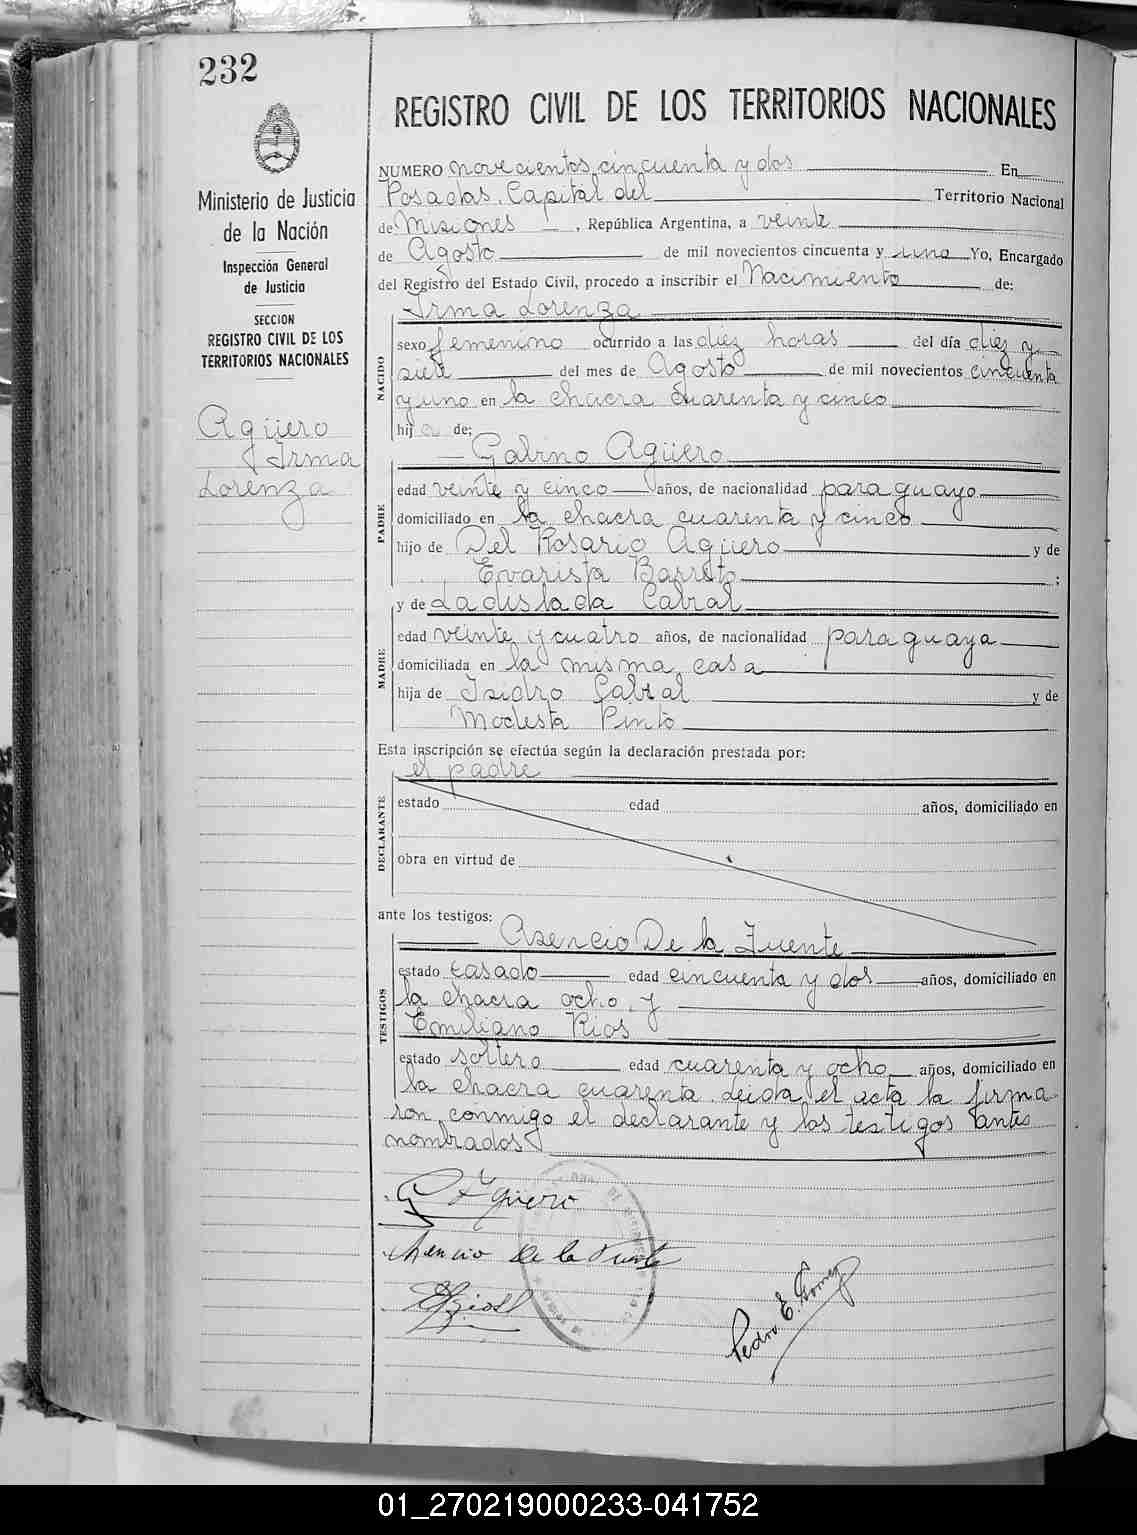 232
Ministerio de Justicia
de la Nación
Inspección General
de Justicia
SECCION
REGISTRO CIVIL DE LOS
TERRITORIOS NACIONALES
Agüero
Irma
Lorenza
REGISTRO CIVIL DE LOS TERRITORIOS NACIONALES
NUMERO novecientos cincuenta y dos En
Posadas, Capital del Territorio Nacional
de Misiones, República Argentina, a veinte
de Agosto de mil novecientos cincuenta y uno Yo, Encargado
del Registro del Estado Civil, procedo a inscribir el Nacimiento de:
Irma Lorenza
NACIDO
sexo femenino ocurrido a las diez horas del día diez y
siete del mes de Agosto de mil novecientos cincuenta
y uno en la chacra cuarenta y cinco
hija de:
Gabino Agüero
PADRE
edad veinte y cinco años, de nacionalidad paraguayo
domiciliado en la chacra cuarenta y cinco
hijo de Del Rosario Agüero y de
Evarista Barreto;
y de Ladislada Cabral
MADRE
edad veinte y cuatro años, de nacionalidad paraguaya
domiciliada en la misma casa
hija de Isidro Cabral y de
Modesta Pinto
Esta inscripción se efectúa según la declaración prestada por:
el padre
DECLARANTE
estado edad años, domiciliado en
obra en virtud de
ante los testigos:
Asencio De la Fuente
TESTIGOS
estado casado edad cincuenta y dos años, domiciliado en
la chacra ocho, y
Emiliano Rios
estado soltero edad cuarenta y ocho años, domiciliado en
la chacra cuarenta. Leida el acta la firma
ron conmigo el declarante y los testigos antes
nombrados
G Agüero
Asencio De la Fuente
E Rios
Pedro E. Gomez
01_270219000233-041752